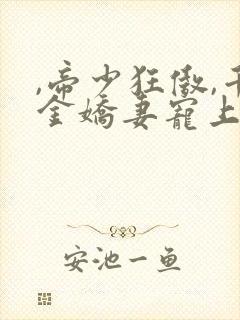 ,帝少狂傲,千
金娇妻宠上
安池一鱼